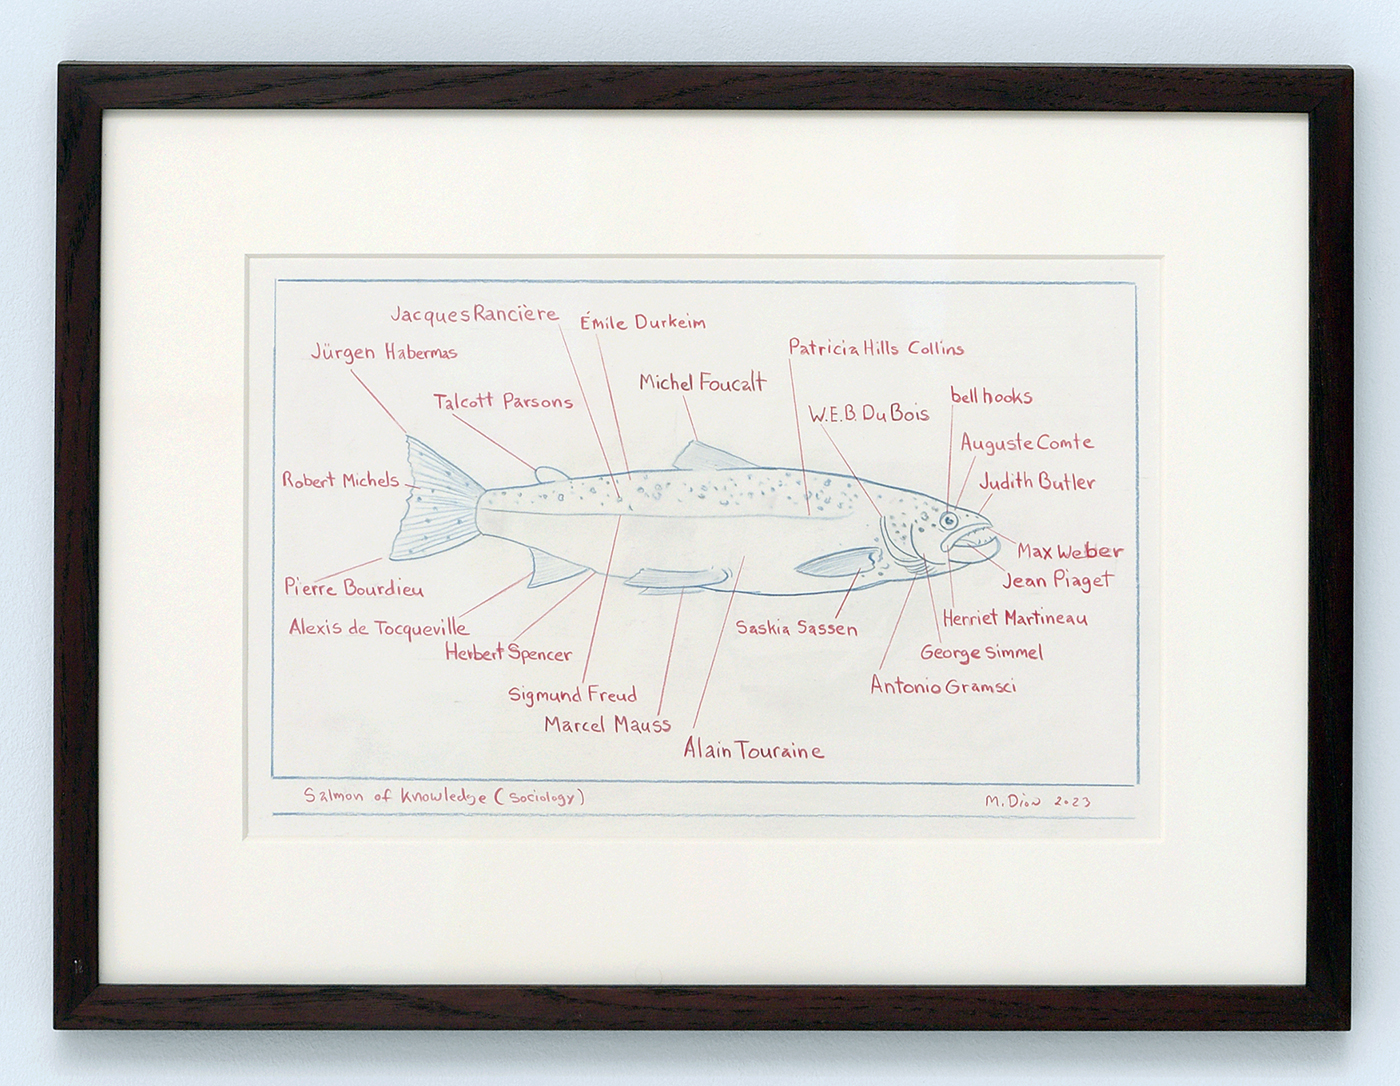 Jacques Rancière
Émile Durkeim
Jürgen Habermas
Patricia Hills Collins
Michel Foucalt
Talcott Parsons
bell hooks
W.E.B. Du Bois
Auguste Comte
Robert Michels
Judith Butler
Max Weber
Jean Piaget
Pierre Bourdieu
Herriet Martineau
Alexis de Tocqueville
Saskia Sassen
Herbert Spencer
George Simmel
Antonio Gramsci
Sigmund Freud
Marcel Mauss
Alain Touraine
Salmon of Knowledge (Sociology)
M. Dion 2023